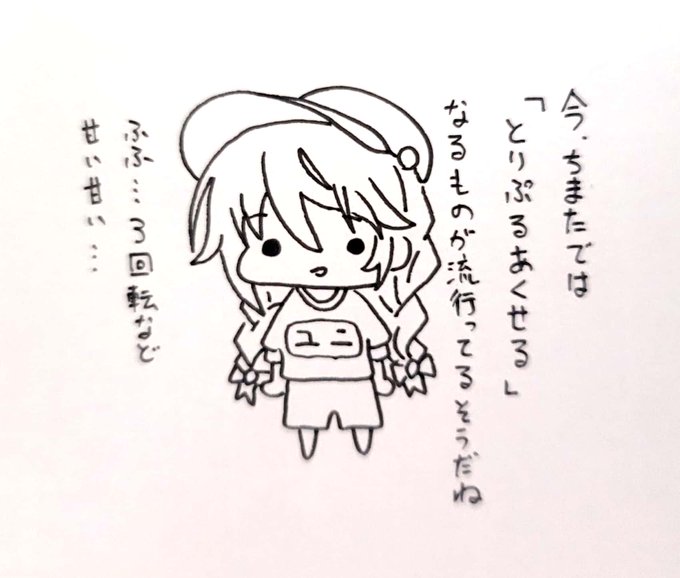 今、ちまたでは
「とりぷるあくせる」
なるものが流行ってるそうだね
ユニ
ふふ…3回転など
甘い甘い…